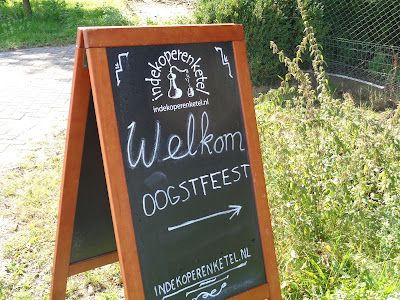 indekoperenketel
indekoperenketel.nl
Welkom
OOGSTFEEST
INDEKOPERENKETEL.NL